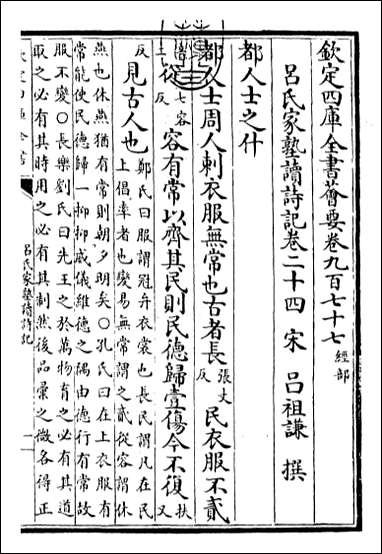 欽定四庫全書薈要卷九百七十七 經部
呂氏家塾讀詩記卷二十四 宋 呂祖謙 撰
都人士之什
都人士周人刺衣服無常也古者長張丈反民衣服不貳
從七容反容有常以齊其民則民德歸壹傷今不復扶又
反見古人也鄭氏曰服謂冠弁衣裳也長民謂凡在民
上倡率者也變易無常謂之貳從容謂休
燕也休燕猶有常則朝夕明矣○孔氏曰在上衣服有
常能使民德歸一抑抑威儀維德之隅由德行有常故
服不變○長樂劉氏曰先王之於萬物育之必有其道
取之必有其時用之必有其制然後品彙之微各得正
欽定四庫全書
呂氏家塾讀詩記
一